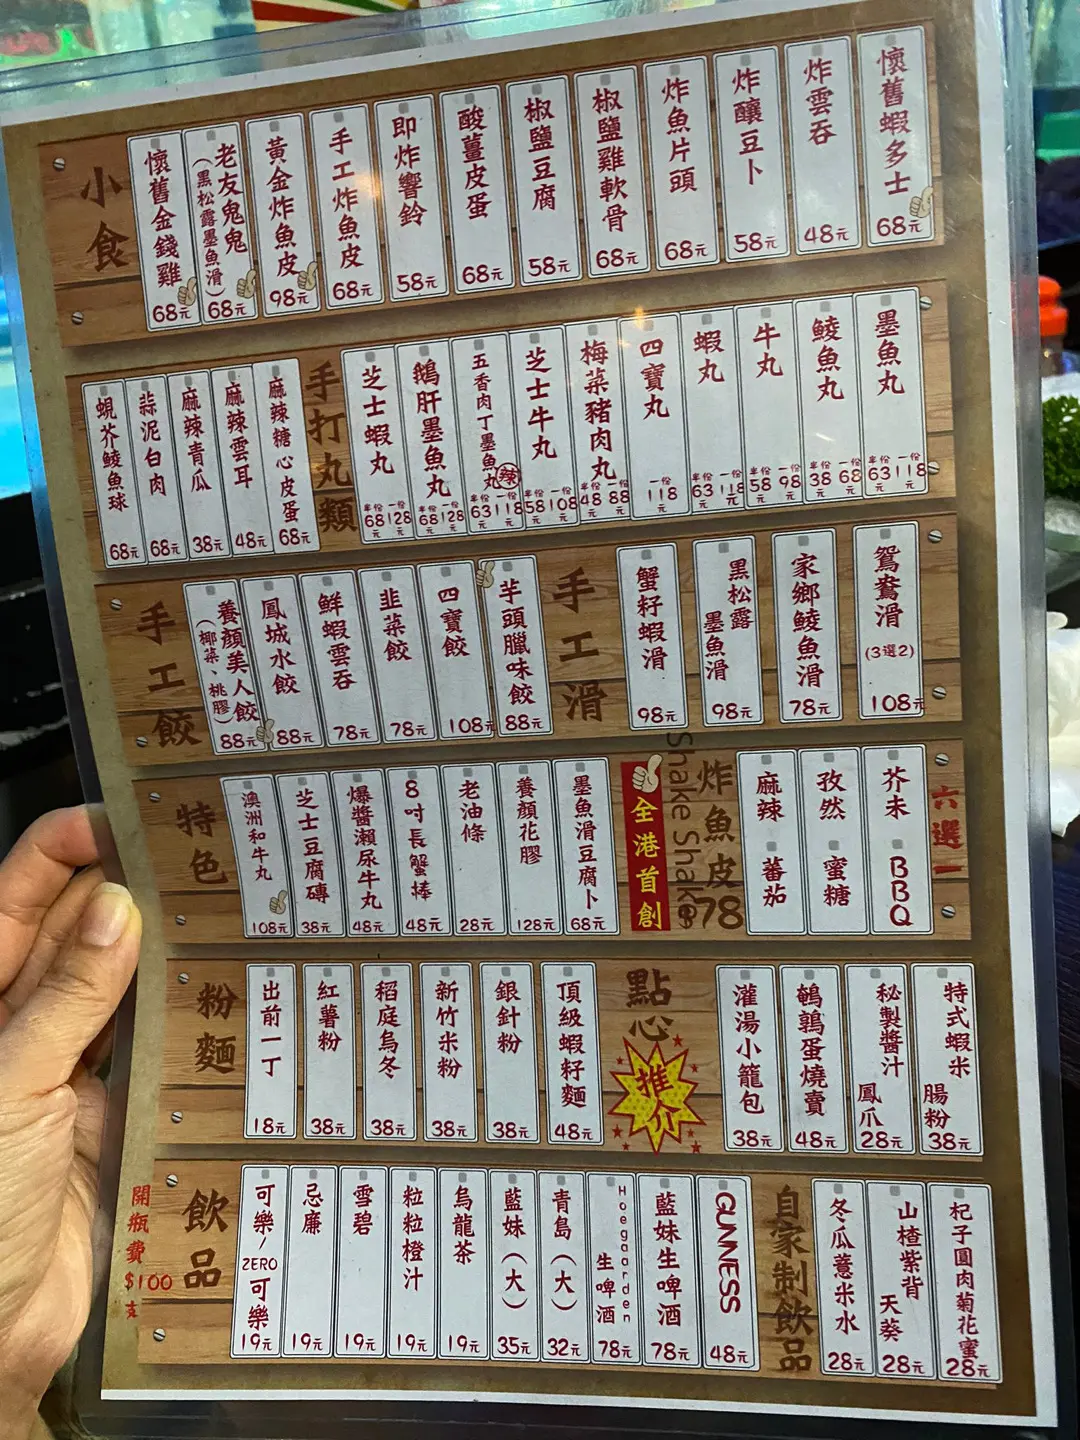 小食
懷舊金錢雞 68元
老友鬼鬼 (黑松露墨魚滑) 68元
黃金炸魚皮 98元
手工炸魚皮 68元
即炸響鈴 58元
酸薑皮蛋 68元
椒鹽豆腐 58元
椒鹽雞軟骨 68元
炸魚片頭 68元
炸釀豆卜 58元
炸雲吞 48元
懷舊蝦多士 68元
蜆芥鯪魚球 68元
蒜泥白肉 68元
麻辣青瓜 38元
麻辣雲耳 48元
麻辣糖心皮蛋 68元
手打丸類
芝士蝦丸 半份68 一份128
鵝肝墨魚丸 半份68 一份128
五香肉丁墨魚丸 辣 半份63 一份118
芝士牛丸 半份58 一份108
梅菜豬肉丸 半份48 一份88
四寶丸 一份118
蝦丸 半份63 一份118
牛丸 半份58 一份98
鯪魚丸 半份38 一份68
墨魚丸 半份63 一份118
手工餃
養顏美人餃 (椰菜、桃膠) 88元
鳳城水餃 88元
鮮蝦雲吞 78元
韭菜餃 78元
四寶餃 108元
芋頭臘味餃 88元
手工滑
蟹籽蝦滑 98元
黑松露墨魚滑 98元
家鄉鯪魚滑 78元
鴛鴦滑 (3選2) 108元
特色
澳洲和牛丸 108元
芝士豆腐磚 38元
爆醬瀨尿牛丸 48元
8吋長蟹棒 48元
老油條 28元
養顏花膠 128元
墨魚滑豆腐卜 68元
全港首創
Shake Shake
炸魚皮 78
麻辣 蕃茄
孜然 蜜糖
芥末 BBQ
六選一
粉麵
出前一丁 18元
紅薯粉 38元
稻庭烏冬 38元
新竹米粉 38元
銀針粉 38元
頂級蝦籽麵 48元
點心
推介
灌湯小籠包 38元
鵪鶉蛋燒賣 48元
秘製醬汁鳳爪 28元
特式蝦米腸粉 38元
開瓶費 $100 支
飲品
可樂/ZERO可樂 19元
忌廉 19元
雪碧 19元
粒粒橙汁 19元
烏龍茶 19元
藍妹(大) 35元
青島(大) 32元
Hoegaarden 生啤酒 78元
藍妹生啤酒 78元
GUNNESS 48元
自家制飲品
冬瓜薏米水 28元
山楂紫背天葵 28元
杞子圓肉菊花蜜 28元